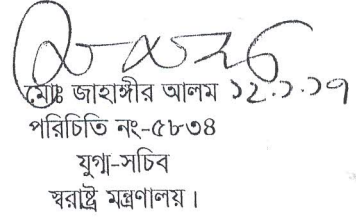 মোঃ জাহাঙ্গীর আলম ১২.১.১৭
পরিচিতি নং-৫৮৩৪
যুগ্ম-সচিব
স্বরাষ্ট্র মন্ত্রণালয়।